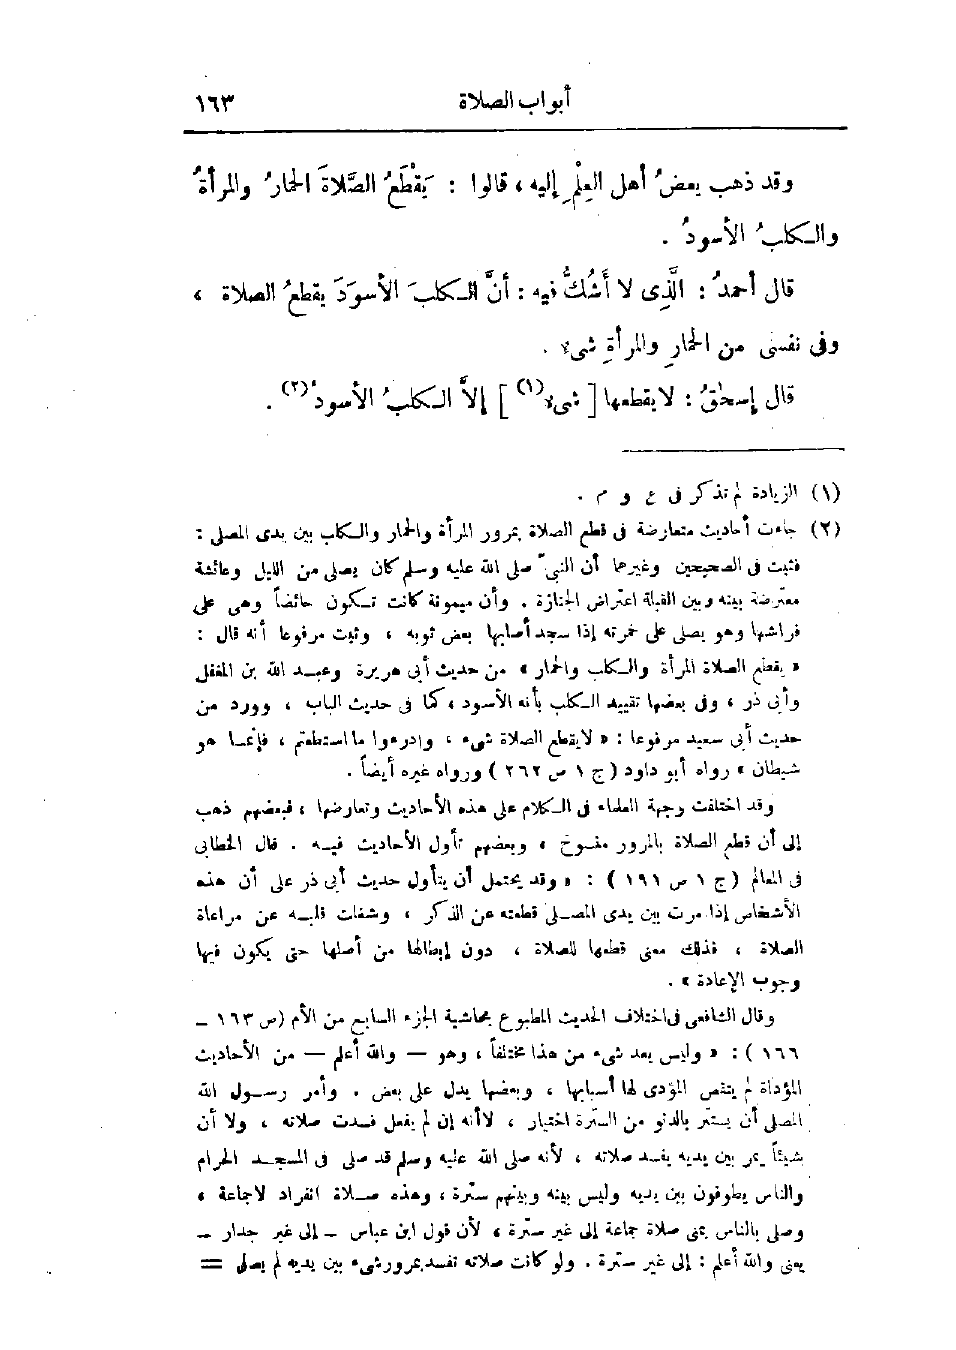 أبواب الصلاة ١٦٣
وقد ذهب بعضُ أهل العِلْمِ إليه ، قالوا : يَقْطَعُ الصَّلاةَ الحمارُ والمرأةُ
والكلبُ الأسودُ .
قال أحمدُ : الَّذِى لا أَشُكُّ فيه : أنَّ الكلبَ الأسوَدَ يقطعُ الصلاة ،
وفى نفسى من الحمارِ والمرأةِ شىء .
قال إسحٰقُ : لا يقطعها [ شىء(١) ] إلاَّ الكلبُ الأسودُ(٢) .
(١) الزيادة لم تذكر فى ع و م .
(٢) جاءت أحاديث متعارضة فى قطع الصلاة بمرور المرأة والحمار والكلب بين يدى المصلى :
فثبت فى الصحيحين وغيرها أن النبىّ صلى الله عليه وسلم كان يصلى من الليل وعائشة
معترضة بينه وبين القبلة اعتراض الجنازة . وأن ميمونة كانت تكون حائضاً وهى على
فراشها وهو يصلى على خمرته إذا سجد أصابها بعض ثوبه ، وثبت مرفوعا أنه قال :
« يقطع الصلاة المرأة والكلب والحمار » من حديث أبى هريرة وعبد الله بن المغفل
وأبى ذر ، وفى بعضها تقييد الكلب بأنه الأسود ، كما فى حديث الباب ، وورد من
حديث أبى سعيد مرفوعا : « لا يقطع الصلاة شىء ، وادرءوا ما استطعتم ، فإنما هو
شيطان » رواه أبو داود ( ج ١ ص ٢٦٢ ) ورواه غيره أيضاً .
وقد اختلفت وجهة العلماء فى الكلام على هذه الأحاديث وتعارضها ، فبعضهم ذهب
إلى أن قطع الصلاة بالمرور منسوخ ، وبعضهم تأول الأحاديث فيه . قال الخطابى
فى المعالم ( ج ١ ص ١٩١ ) : « وقد يحتمل أن يتأول حديث أبى ذر على أن هذه
الأشخاص إذا مرت بين يدى المصلى قطعته عن الذكر ، وشغلت قلبه عن مراعاة
الصلاة ، فذلك معنى قطعها للصلاة ، دون إبطالها من أصلها حتى يكون فيها
وجوب الإعادة » .
وقال الشافعى فى اختلاف الحديث المطبوع بحاشية الجزء السابع من الأم ( ص ١٦٣ ـ
١٦٦ ) : « وليس يعد شىء من هذا مختلفاً ، وهو — والله أعلم — من الأحاديث
المؤداة لم يتقص المؤدى لها أسبابها ، وبعضها يدل على بعض . وأمر رسول الله
المصلى أن يستتر بالدنو من السترة اختيار ، لا أنه إن لم يفعل فسدت صلاته ، ولا أن
شيئاً يمر بين يديه يفسد صلاته ، لأنه صلى الله عليه وسلم قد صلى فى المسجد الحرام
والناس يطوفون بين يديه وليس بينه وبينهم سترة ، وهذه صلاة انفراد لا جماعة ،
وصلى بالناس بمنى صلاة جماعة إلى غير سترة ، لأن قول ابن عباس ـ إلى غير جدار ـ
يعنى والله أعلم : إلى غير سترة . ولو كانت صلاته تفسد بمرور شىء بين يديه لم يصلى =